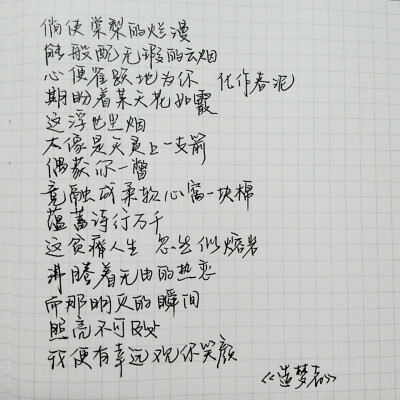 倘使棠梨的烂漫
能般配无瑕的云烟
心便雀跃地为你 化作春泥
期盼着某天花如霰
这浮世尘烟
大像是天灵上一支箭
偶获你一瞥
竟融成柔软心窝一块棉
蕴蓄诗行万千
这贫瘠人生 忽生似熔岩
沸腾着无由的热恋
而那明灭的瞬间
照亮不可及处
我便有幸远观你笑颜
《造梦者》